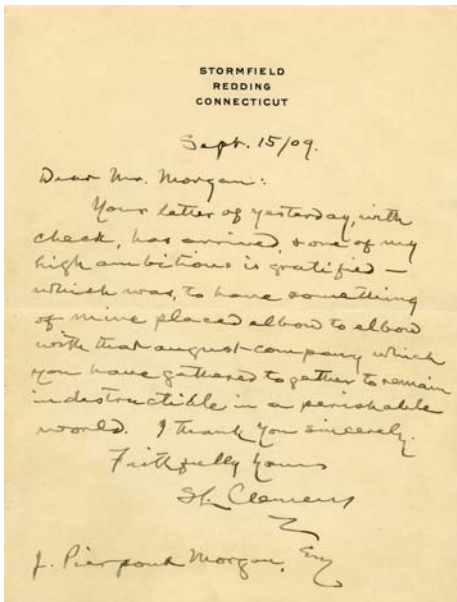 STORMFIELD
REDDING
CONNECTICUT
Sept. 15/09.
Dear Mr. Morgan:
Your letter of yesterday, with
check, has arrived, & one of my
high ambitions is gratified —
which was, to have something
of mine placed elbow to elbow
with that august company which
you have gathered together to remain
indestructible in a perishable
world. I thank you sincerely.
Faithfully Yours
SL. Clemens
J. Pierpont Morgan, Esq